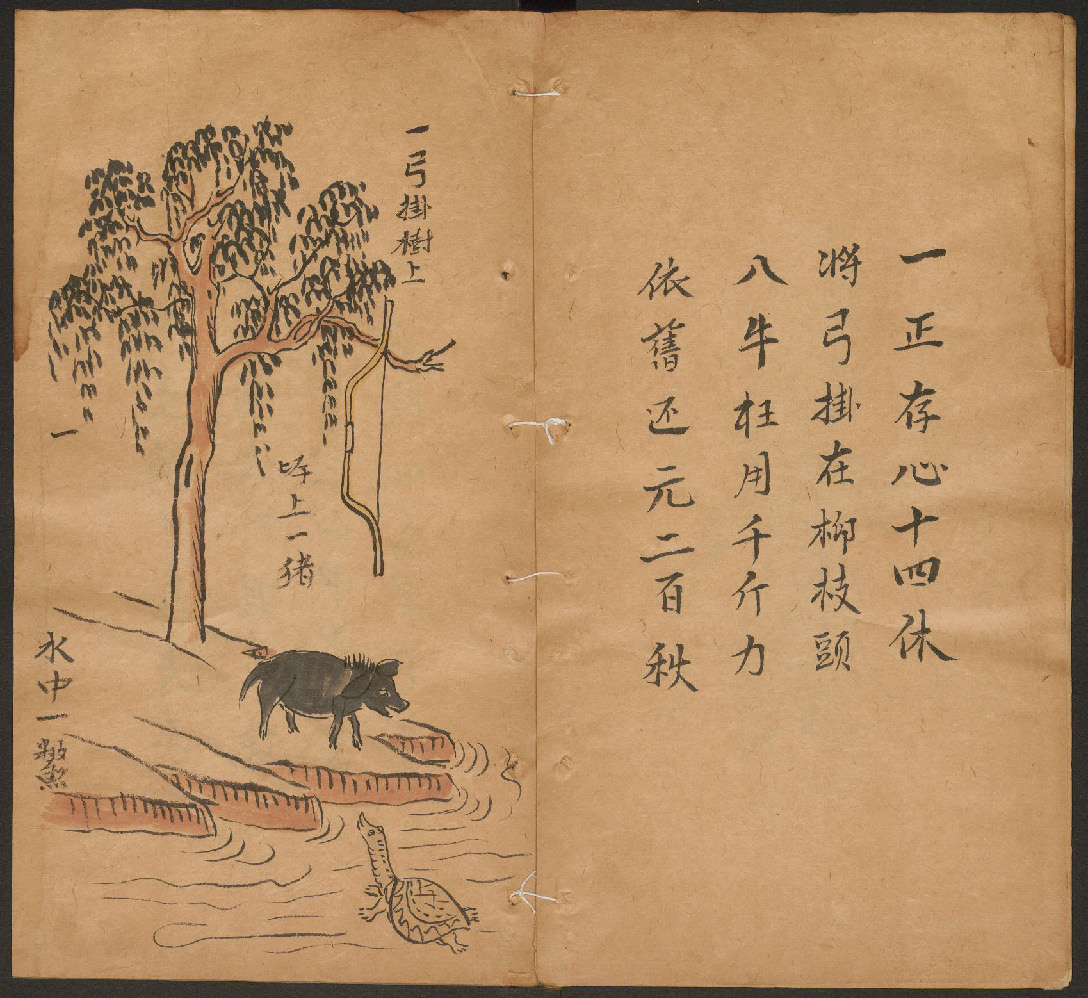 一正存心十四休
將弓掛在柳枝頭
八牛枉用千斤力
依舊还元二百秋
一弓掛樹上
坪上一猪
水中一鱉